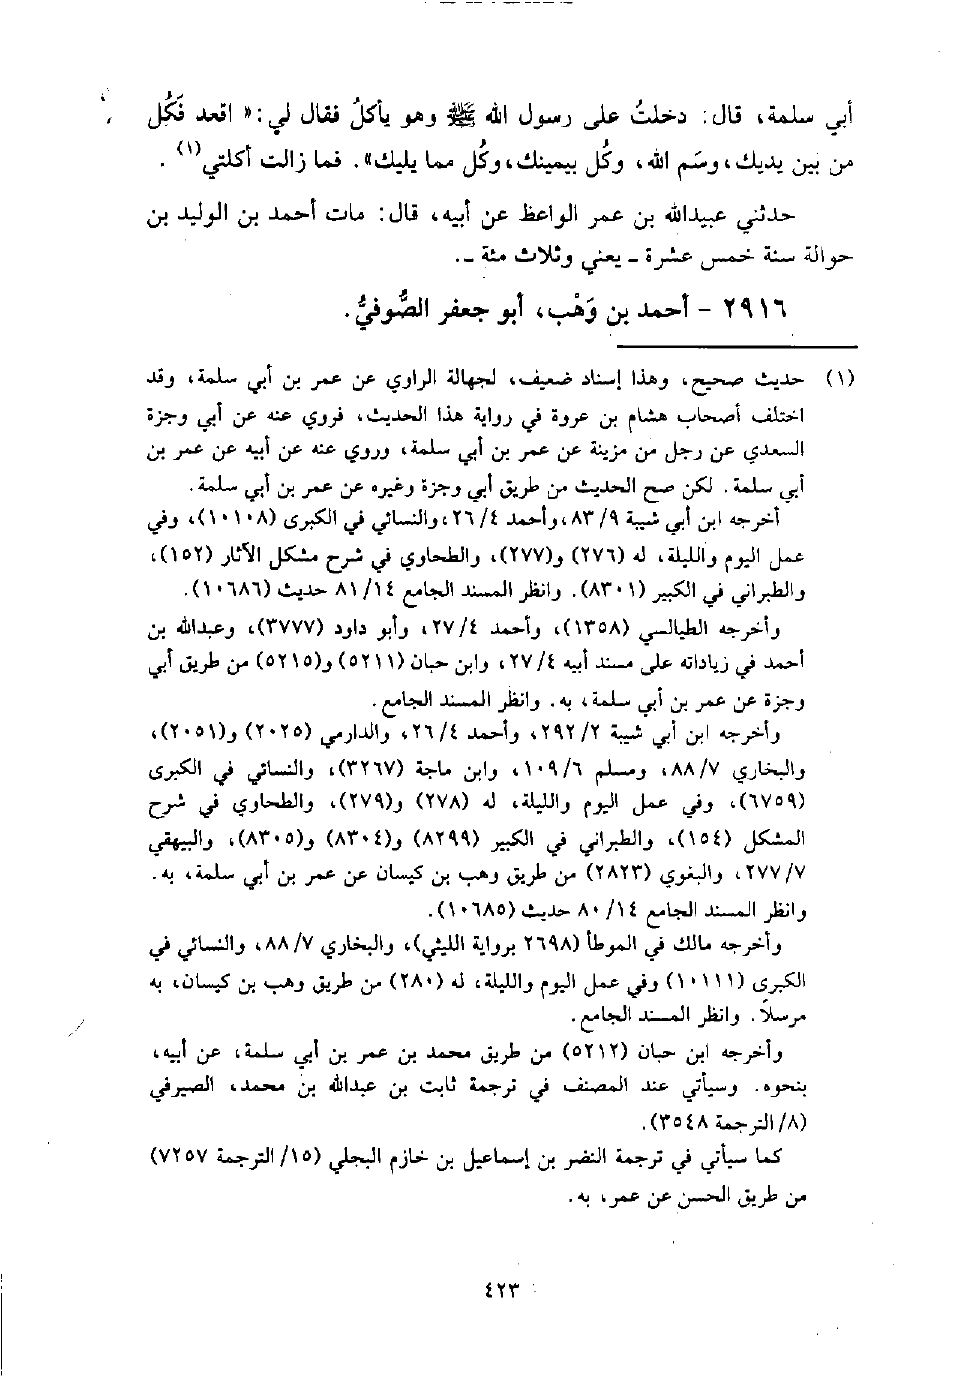 أبي سلمة، قال: دخلتُ على رسول الله ﷺ وهو يأكلُ فقال لي: «اقعد فَكُل
من بين يديك، وسَم الله، وكُل بيمينك، وكُل مما يليك». فما زالت أكلتي(١) .
حدثني عبيدالله بن عمر الواعظ عن أبيه، قال: مات أحمد بن الوليد بن
حوالة سنة خمس عشرة ـ يعني وثلاث مئة ـ.
٢٩١٦ - أحمد بن وَهْب، أبو جعفر الصُّوفيُّ.
(١) حديث صحيح، وهذا إسناد ضعيف، لجهالة الراوي عن عمر بن أبي سلمة، وقد
اختلف أصحاب هشام بن عروة في رواية هذا الحديث، فروي عنه عن أبي وجزة
السعدي عن رجل من مزينة عن عمر بن أبي سلمة، وروي عنه عن أبيه عن عمر بن
أبي سلمة. لكن صح الحديث من طريق أبي وجزة وغيره عن عمر بن أبي سلمة.
أخرجه ابن أبي شيبة ٩/ ٨٣، وأحمد ٤/ ٢٦، والنسائي في الكبرى (١٠١٠٨)، وفي
عمل اليوم والليلة، له (٢٧٦) و(٢٧٧)، والطحاوي في شرح مشكل الآثار (١٥٢)،
والطبراني في الكبير (٨٣٠١). وانظر المسند الجامع ١٤/ ٨١ حديث (١٠٦٨٦).
وأخرجه الطيالسي (١٣٥٨)، وأحمد ٤/ ٢٧، وأبو داود (٣٧٧٧)، وعبدالله بن
أحمد في زياداته على مسند أبيه ٤/ ٢٧، وابن حبان (٥٢١١) و(٥٢١٥) من طريق أبي
وجزة عن عمر بن أبي سلمة، به. وانظر المسند الجامع.
وأخرجه ابن أبي شيبة ٢/ ٢٩٢، وأحمد ٤/ ٢٦، والدارمي (٢٠٢٥) و(٢٠٥١)،
والبخاري ٧/ ٨٨، ومسلم ٦/ ١٠٩، وابن ماجة (٣٢٦٧)، والنسائي في الكبرى
(٦٧٥٩)، وفي عمل اليوم والليلة، له (٢٧٨) و(٢٧٩)، والطحاوي في شرح
المشكل (١٥٤)، والطبراني في الكبير (٨٢٩٩) و(٨٣٠٤) و(٨٣٠٥)، والبيهقي
٧/ ٢٧٧، والبغوي (٢٨٢٣) من طريق وهب بن كيسان عن عمر بن أبي سلمة، به.
وانظر المسند الجامع ١٤/ ٨٠ حديث (١٠٦٨٥).
وأخرجه مالك في الموطأ (٢٦٩٨ برواية الليثي)، والبخاري ٧/ ٨٨، والنسائي في
الكبرى (١٠١١١) وفي عمل اليوم والليلة، له (٢٨٠) من طريق وهب بن كيسان، به
مرسلاً. وانظر المسند الجامع.
وأخرجه ابن حبان (٥٢١٢) من طريق محمد بن عمر بن أبي سلمة، عن أبيه،
بنحوه. وسيأتي عند المصنف في ترجمة ثابت بن عبدالله بن محمد، الصيرفي
(٨/ الترجمة ٣٥٤٨).
كما سيأتي في ترجمة النضر بن إسماعيل بن خازم البجلي (١٥/ الترجمة ٧٢٥٧)
من طريق الحسن عن عمر، به.
٤٢٣